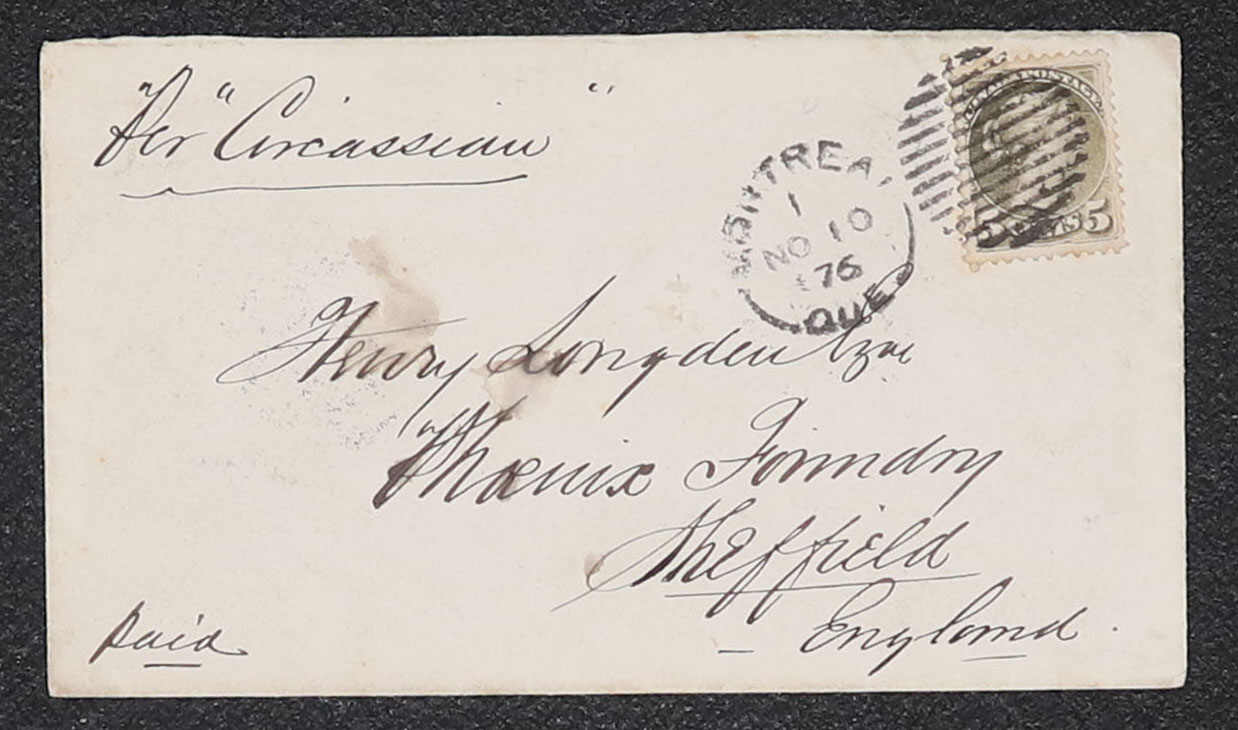 Per "Circassian"
MONTREAL
1
NO 10
76
QUE
POSTAGE
5 CENTS 5
Henry Longden Esqre
Phœnix Foundry
Sheffield
England
Paid